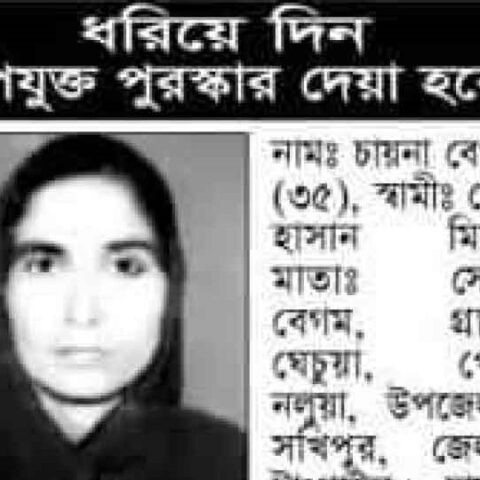 ধরিয়ে দিন
পযুক্ত পুরস্কার দেয়া হবে
নামঃ চায়না বে
(৩৫), স্বামীঃ
হাসান মি
মাতাঃ সে
বেগম, গ্রা
ঘেচুয়া, পে
নলুয়া, উপজেল
সখিপুর, জেল